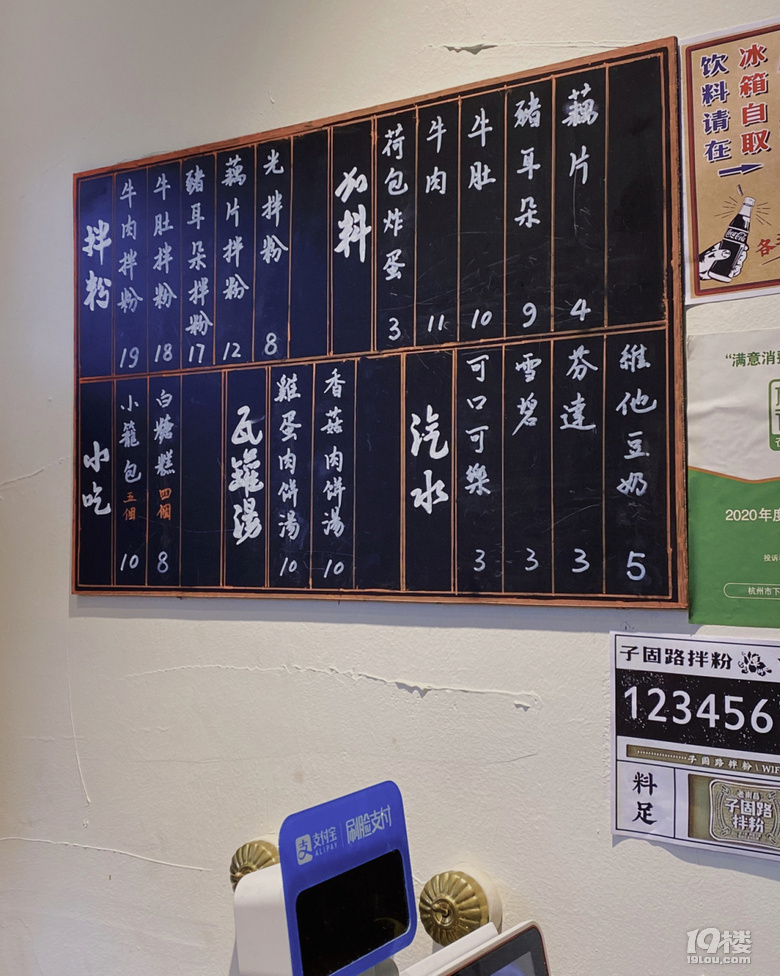 拌粉
牛肉拌粉 19
牛肚拌粉 18
豬耳朵拌粉 17
藕片拌粉 12
光拌粉 8
加料
荷包炸蛋 3
牛肉 11
牛肚 10
豬耳朵 9
藕片 4
小吃
小籠包 五個 10
白糖糕 四個 8
瓦罐湯
雞蛋肉餅湯 10
香菇肉餅湯 10
汽水
可口可樂 3
雪碧 3
芬達 3
維他豆奶 5
冰箱自取
饮料请在
Coca-Cola
各
“满意消费
2020年度
投诉
杭州市下
子固路拌粉
123456
子固路拌粉\WIF
料足
老南昌
子固路
拌粉
支 支付宝
ALIPAY
刷脸支付
19楼
19lou.com